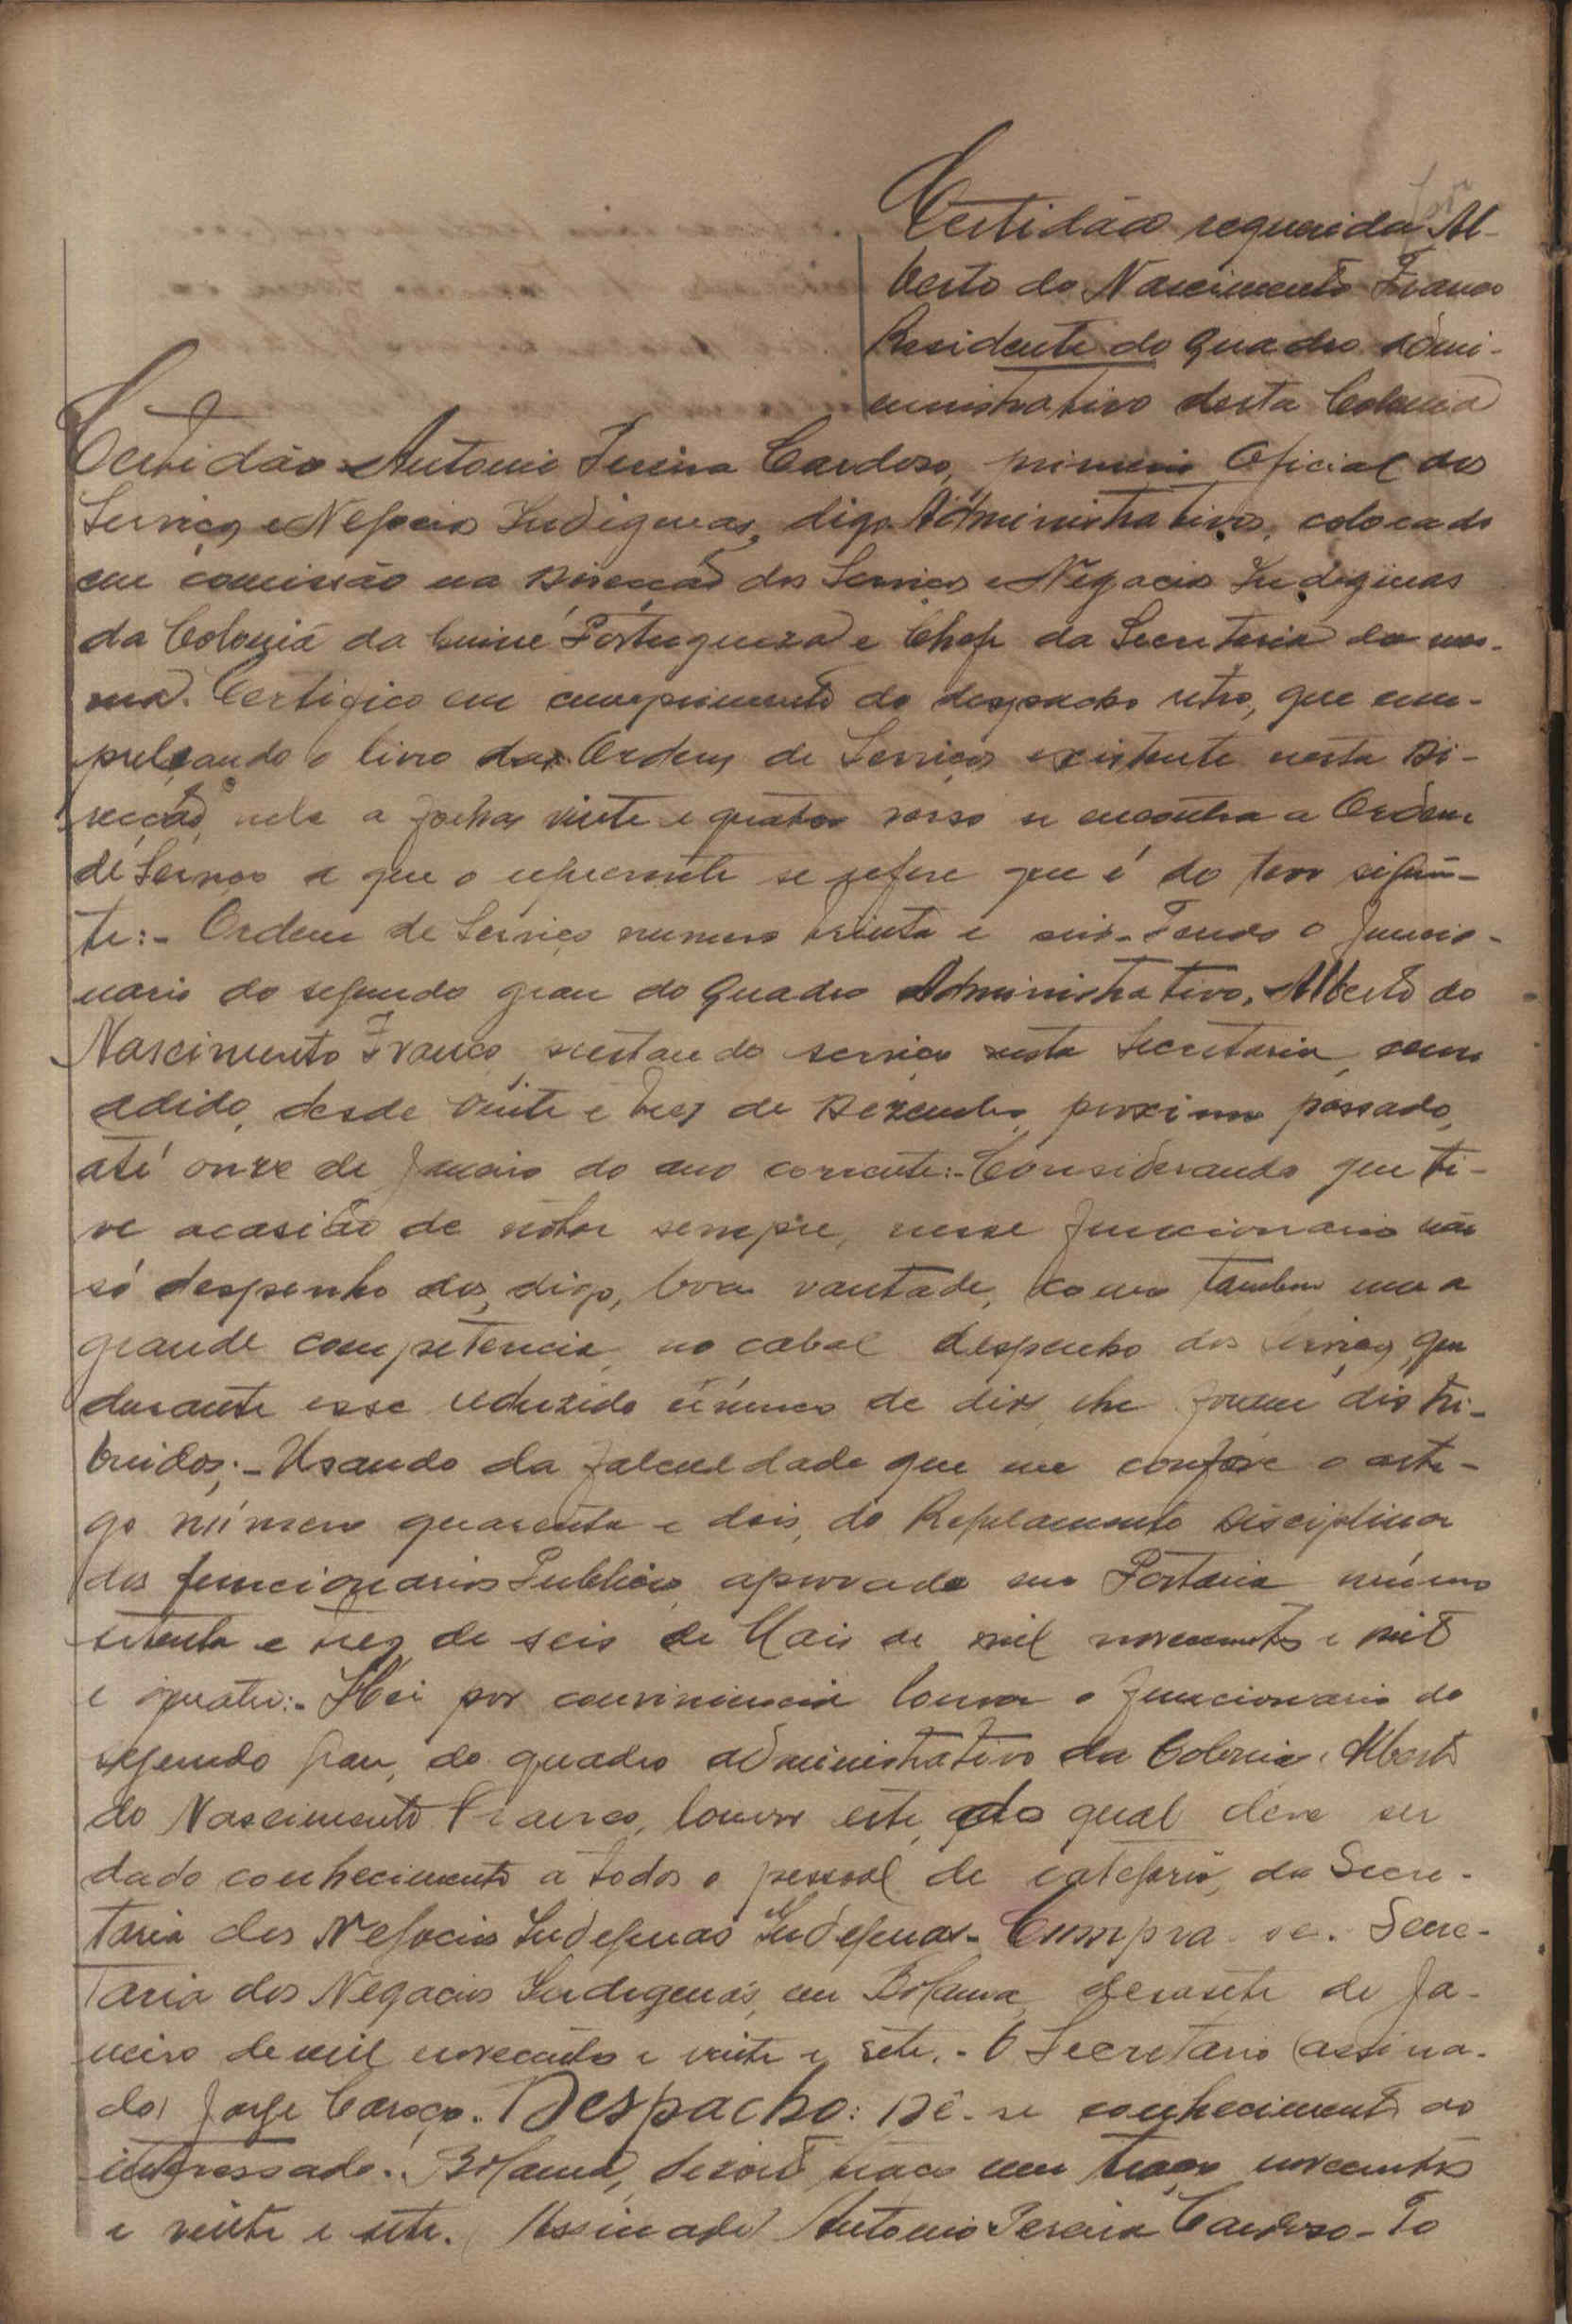 Certidão requerida por Al-
berto do Nascimento Franco
Residente do Quadro Admi-
ministrativo desta Colonia
Certidão Antonio Pereira Cardoso, primeiro Oficial dos
Serviços e Negocios Indigenas, digo Administrativos, colocado
em comissão na Direcção dos Serviços e Negocios Indigenas
da Colonia da Guiné Portugueza e Chefe da Secretaria da mes-
ma. Certifico em cumprimento do despacho retro, que com-
pulsando o livro das Ordens de Serviços existente nesta Di-
recção, nele a folhas vinte e quatro verso se encontra a Ordem
de Serviço a que o requerente se refere que é do teor seguin-
te:- Ordem de Serviço numero trinta e seis- Tendo o funcio-
nario do segundo grau do Quadro Administrativo, Alberto do
Nascimento Franco, prestando serviço nesta Secretaria, como
adido, desde vinte e trez de Dezembro, proximo passado,
até onze de Janeiro do ano corrente:- Considerando que ti-
ve acasião de notar sempre, nesse funcionario não
só despenho dos, digo, boa vantade, como tambem uma
grande competencia, no cabal despenho dos serviços, que
durante esse reduzido número de dias, lhe foram distri-
buidos;- Usando da falculdade que me confere o arti-
go número quarenta e dois, do Regulamento Disciplinar
dos funcionarios Publicos, aprovado em Portaria número
setenta e trez, de seis de Maio de mil novecentos e vinte
e quatro:- Hei por conviniencia louvar o funcionario do
segundo grau, do quadro administrativo da Colonia, Alberto
do Nascimento Franco, louvor este, do qual deve ser
dado conhecimento a todos o pessoal de categoria, da Secre-
taria dos Negocios Indegenas Indegenas- Cumpra-se. Secre-
taria dos Negocios Indigenas, em Bolama, desasete de Ja-
neiro de mil novecentos e vinte e sete.- O Secretario (assina-
do) Jorge Caroço. Despacho: Dê-se conhecimento ao
interessado. Bolama, dezoito traço um traço novecentos
e vinte e sete. (Assinado) Antonio Pereira Cardoso- To